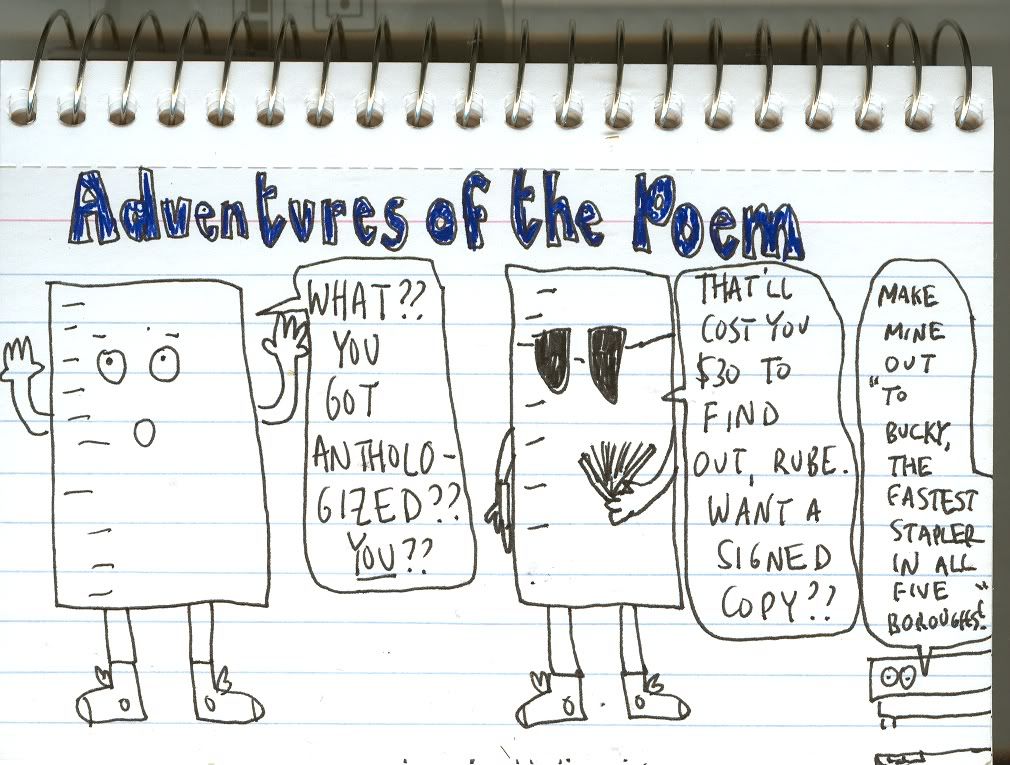 Adventures of the Poem
WHAT??
YOU
GOT
ANTHOLO-
GIZED??
YOU??
THAT'LL
COST YOU
$30 TO
FIND
OUT, RUBE.
WANT A
SIGNED
COPY??
MAKE
MINE
OUT
"TO
BUCKY,
THE
FASTEST
STAPLER
IN ALL
FIVE
BOROUGHS."